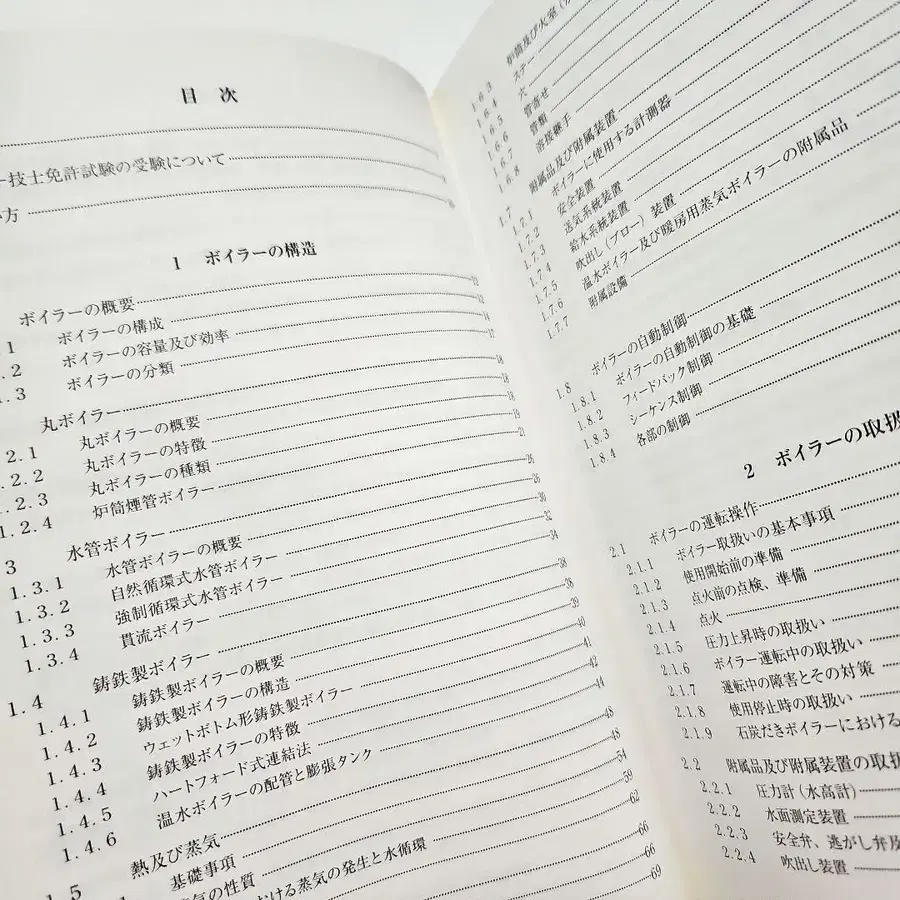 目 次
技士免許試験の受験について
方
1 ボイラーの構造
ボイラーの概要 12
1 ボイラーの構成 12
.2 ボイラーの容量及び効率 16
1.3 ボイラーの分類 17
丸ボイラー 18
.2.1 丸ボイラーの概要 18
.2.2 丸ボイラーの特徴 18
1.2.3 丸ボイラーの種類 19
1.2.4 炉筒煙管ボイラー 21
3 水管ボイラー 26
1.3.1 水管ボイラーの概要 26
1.3.2 自然循環式水管ボイラー 30
1.3.3 強制循環式水管ボイラー 32
1.3.4 貫流ボイラー 34
1.4 鋳鉄製ボイラー 38
1.4.1 鋳鉄製ボイラーの概要 38
1.4.2 鋳鉄製ボイラーの構造 39
1.4.3 ウェットボトム形鋳鉄製ボイラー 40
1.4.4 鋳鉄製ボイラーの特徴 41
1.4.5 ハートフォード式連結法 42
1.4.6 温水ボイラーの配管と膨張タンク 44
1.5 熱及び蒸気 48
基礎事項 48
気の性質 54
おける蒸気の発生と水循環 59
62
66
66
69
1.6.3 炉筒及び火室
1.6.4 ステー
1.6.5 穴
1.6.6 管寄せ
1.6.7 管類
1.6.8 溶接継手
1.7 附属品及び附属装置
1.7.1 ボイラーに使用する計測器
1.7.2 安全装置
1.7.3 送気系統装置
1.7.4 給水系統装置
1.7.5 吹出し(ブロー)装置
1.7.6 温水ボイラー及び暖房用蒸気ボイラーの附属品
1.7.7 附属設備
1.8 ボイラーの自動制御
1.8.1 ボイラーの自動制御の基礎
1.8.2 フィードバック制御
1.8.3 シーケンス制御
1.8.4 各部の制御
2 ボイラーの取扱
2.1 ボイラーの運転操作
2.1.1 ボイラー取扱いの基本事項
2.1.2 使用開始前の準備
2.1.3 点火前の点検、準備
2.1.4 点火
2.1.5 圧力上昇時の取扱い
2.1.6 ボイラー運転中の取扱い
2.1.7 運転中の障害とその対策
2.1.8 使用停止時の取扱い
2.1.9 石炭だきボイラーにおける
2.2 附属品及び附属装置の取扱
2.2.1 圧力計(水高計)
2.2.2 水面測定装置
2.2.3 安全弁、逃がし弁及
2.2.4 吹出し装置